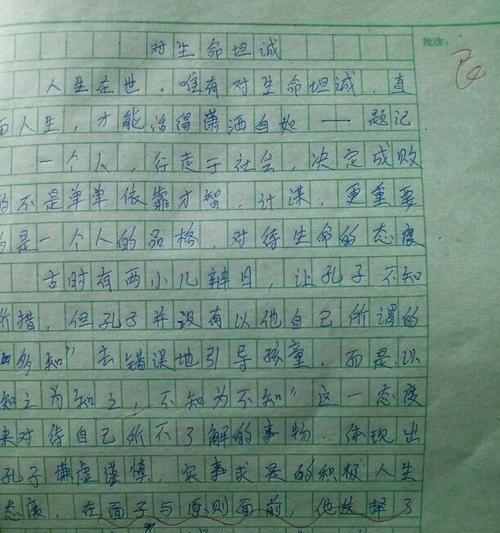 对生命坦诚
批改:
人生在世，唯有对生命坦诚，直
面人生，才能活得潇洒自如 —— 题记
一个人，行走于社会，决定成败
的不是单单依靠才智，计谋，更重要
的是一个人的品格，对待生命的态度
古时有两小儿辩日，让孔子不知
所措，但孔子并没有以他自己所谓的
"多知"去错误地引导孩童，而是以
知之为知之，不知为不知"这一态度
来对待自己所不了解的事物，体现出
孔子谦虚谨慎，实事求是的积极人生
态度，在面子与原则面前，他选择了